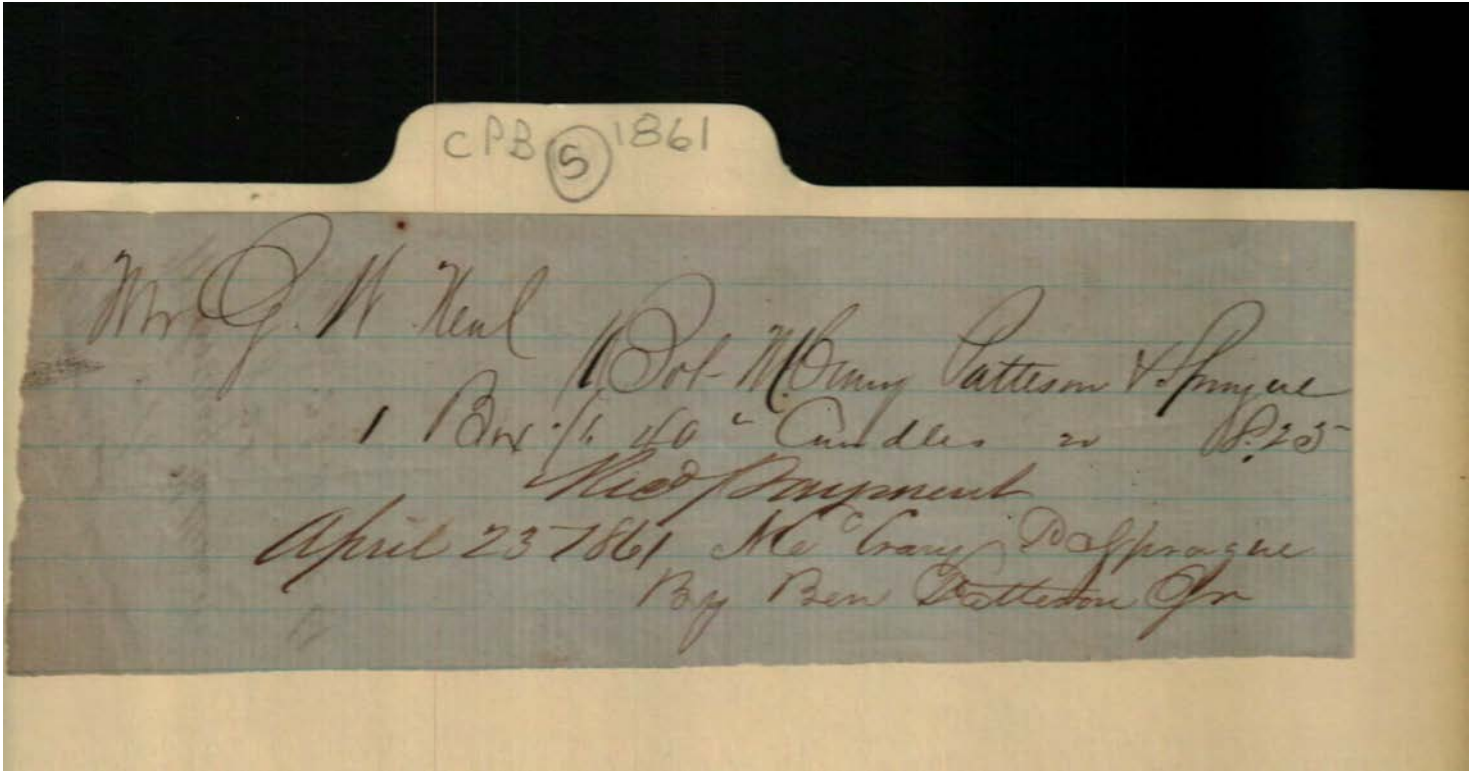 CPB (5) 1861
Mr G. W. Neal
Bot McCrary Patteson & Sprague
1 Box 40 " Candles 8.25
Recd Payment
April 23 1861 McCrary P & Sprague
By Ben Patteson Jr